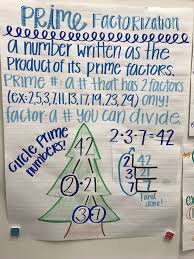 PRIME Factorization
a number written as the
Product of its prime factors.
PRIME #: a # that has 2 factors
(ex: 2,5,3,7,11,13,17,19,23,29) only!
factor-a # you can divide.
Circle Prime
numbers!
42
2·21
3·7
2·3·7=42
2 42
3 21
7 7
1
and
done!